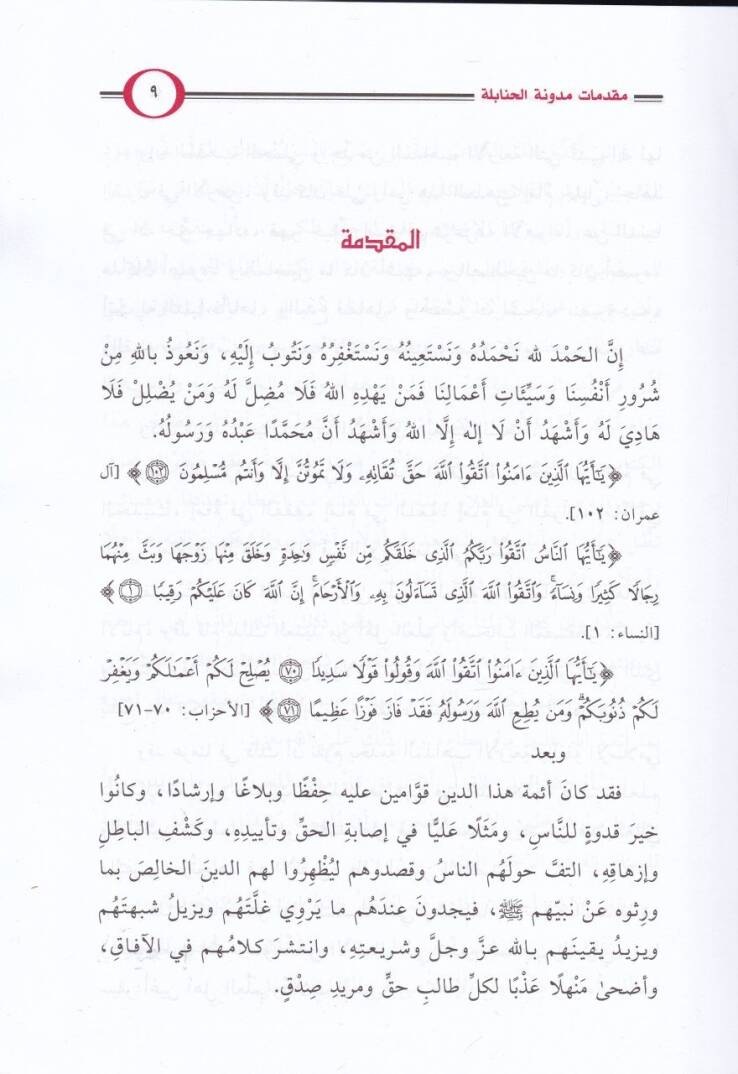 مقدمات مدونة الحنابلة
٩
المقدمة
إِنَّ الحَمْدَ لله نَحْمَدُهُ وَنَسْتَعِينُهُ وَنَسْتَغْفِرُهُ وَنَتُوبُ إِلَيْهِ، وَنَعُوذُ بِاللهِ مِن
شُرُورِ أَنْفُسِنَا وَسَيِّئَاتِ أَعْمَالِنَا فَمَنْ يَهْدِهِ اللهُ فَلَا مُضِلَّ لَهُ وَمَنْ يُضْلِلْ فَلَا
هَادِيَ لَهُ وَأَشْهَدُ أَنْ لَا إِلٰه إِلَّا اللهُ وَأَشْهَدُ أَنَّ مُحَمَّدًا عَبْدُهُ وَرَسُولُهُ.
﴿يَٰٓأَيُّهَا ٱلَّذِينَ ءَامَنُوا۟ ٱتَّقُوا۟ ٱللَّهَ حَقَّ تُقَاتِهِۦ وَلَا تَمُوتُنَّ إِلَّا وَأَنتُم مُّسْلِمُونَ ١٠٢﴾ [آل
عمران: ١٠٢].
﴿يَٰٓأَيُّهَا ٱلنَّاسُ ٱتَّقُوا۟ رَبَّكُمُ ٱلَّذِى خَلَقَكُم مِّن نَّفْسٍ وَٰحِدَةٍ وَخَلَقَ مِنْهَا زَوْجَهَا وَبَثَّ مِنْهُمَا
رِجَالًا كَثِيرًا وَنِسَآءً ۚ وَٱتَّقُوا۟ ٱللَّهَ ٱلَّذِى تَسَآءَلُونَ بِهِۦ وَٱلْأَرْحَامَ ۚ إِنَّ ٱللَّهَ كَانَ عَلَيْكُمْ رَقِيبًا ١﴾
[النساء: ١].
﴿يَٰٓأَيُّهَا ٱلَّذِينَ ءَامَنُوا۟ ٱتَّقُوا۟ ٱللَّهَ وَقُولُوا۟ قَوْلًا سَدِيدًا ٧٠ يُصْلِحْ لَكُمْ أَعْمَٰلَكُمْ وَيَغْفِرْ
لَكُمْ ذُنُوبَكُمْ ۗ وَمَن يُطِعِ ٱللَّهَ وَرَسُولَهُۥ فَقَدْ فَازَ فَوْزًا عَظِيمًا ٧١﴾ [الأحزاب: ٧٠-٧١]
وبعد
فقد كانَ أئمة هذا الدين قوَّامين عليه حِفْظًا وبلاغًا وإرشادًا، وكانُوا
خيرَ قدوةٍ للنَّاسِ، ومَثَلًا عَليًّا في إصابةِ الحقِّ وتأييدِهِ، وكَشْفِ الباطِلِ
وإزهاقِهِ، التفَّ حولَهُم الناسُ وقصدوهم ليُظْهِرُوا لهم الدينَ الخالِصَ بما
ورِثوه عَنْ نبيّهم ﷺ، فيجدونَ عندَهُم ما يَرْوِي غلَّتَهُم ويزيلُ شبهتَهُم
ويزيدُ يقينَهم بالله عزَّ وجلَّ وشريعتِهِ، وانتشرَ كلامُهم في الآفاقِ،
وأضحىٰ مَنْهلًا عَذْبًا لكلِّ طالبِ حقٍّ ومريدِ صِدْقٍ.